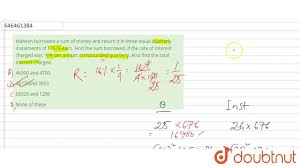 646461384
Mahesh borrowed a sum of money and return it in three equal quarterly
instalments of ₹17576 each. Find the sum borrowed, if the rate of interest
charged was 16% per annum compounded quarterly. Also find the total
interest charged.
A) 46900 and 4700
and 3953
C) 58320 and 1200
D) None of these
R = 16% × 1/4 = 16 4 / 4 × 100 25 = 1/25
B Inst
25 × 676 26 × 676
16900
doubtnut